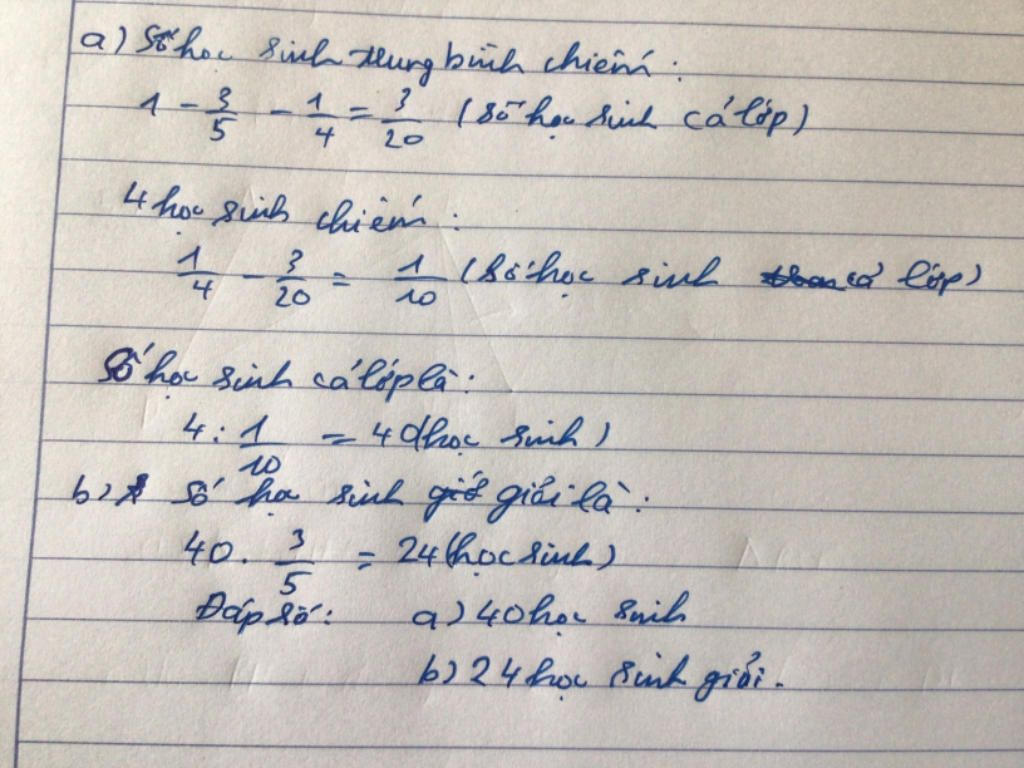 a) Số học sinh trung bình chiếm:
1 - 3/5 - 1/4 = 3/20 (số học sinh cả lớp)
4 học sinh chiếm:
1/4 - 3/20 = 1/10 (số học sinh cả lớp)
Số học sinh cả lớp là:
4 : 1/10 = 40 (học sinh)
b) Số học sinh giỏi là:
40 . 3/5 = 24 (học sinh)
Đáp số: a) 40 học sinh
b) 24 học sinh giỏi.